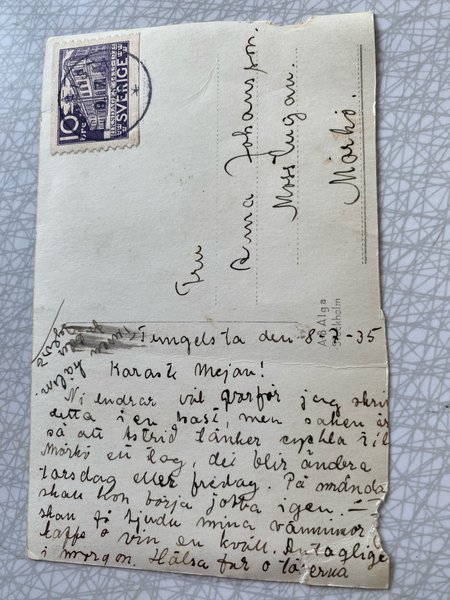 10
ÖRE
SVERIGE
Fru
Anna Johansson.
Mosstugan.
Mörkö.
AB Alga
Stockholm
Tungelsta den 8 -35
Käraste Mejan!
Ni undrar väl varför jag skri
detta i en hast, men saken är
så att Astrid tänker cykla till
Mörkö en dag, det blir
torsdag eller fredag. På månda
skall hon börja jobba igen. —
skall få bjuda mina väninnor
kaffe o vin en kväll. Antaglige
i morgon. Hälsa far o